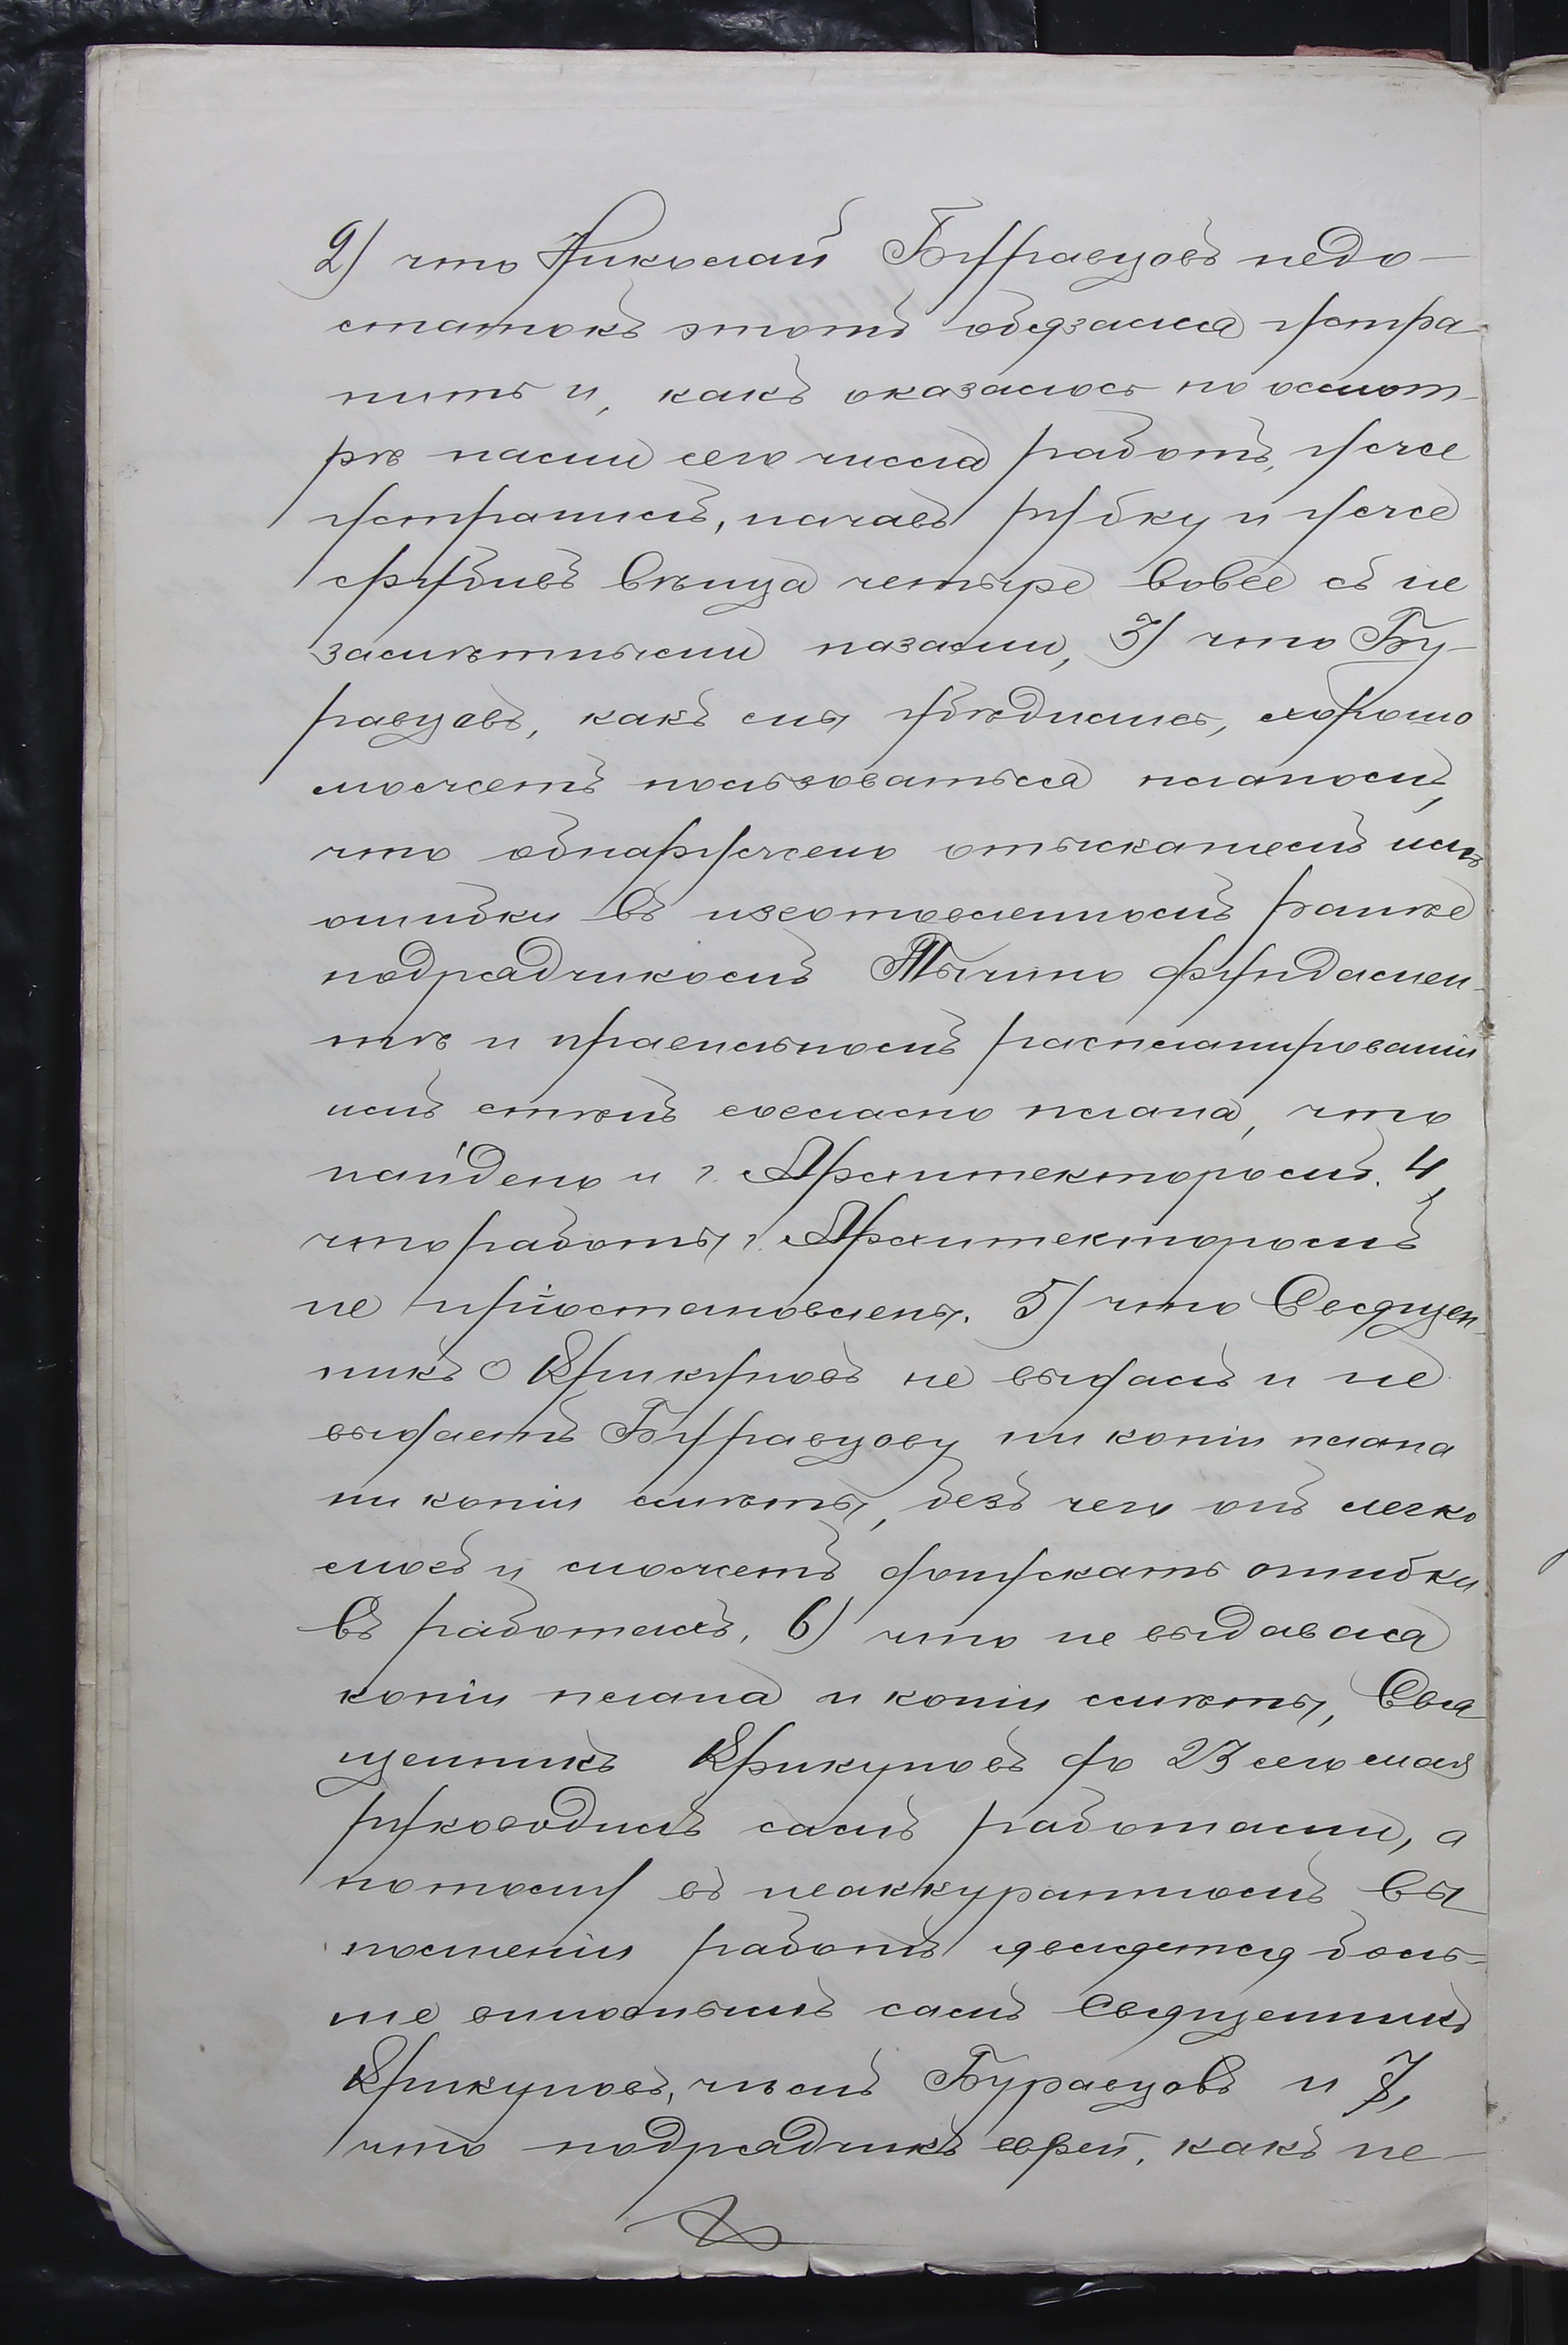 2) что Николай Буравцовъ недо-
статокъ этотъ обязался устра-
нить и, какъ оказалось по осмот-
рѣ нами сего числа работъ, уже
устранилъ, начавъ рубку и уже
срубивъ вѣнца четыре вовсе съ не
замѣтными пазами, 3) что Бу-
равцовъ, какъ мы убѣдились, хорошо
можетъ пользоваться планомъ,
что обнаружено отысканіемъ имъ
ошибки въ изготовленномъ ранѣе
подрядчикомъ Тычино фундамен-
тѣ и правильномъ распланированіи
имъ стѣнъ согласно плана, что
найдено и г. Архитекторомъ. 4,
что работы г. Архитекторомъ
не пріостановлены. 5) что Священ-
никъ о Крикуновъ не выдалъ и не
выдаетъ Буравцову ни копіи плана
ни копіи смѣты, безъ чего онъ легко
могъ и можетъ допускать ошибки
въ работахъ. 6) что не выдавая
копіи плана и копіи смѣты, Свя-
щенникъ Крикуновъ до 23 сего мая
руководилъ самъ работами, а
потому въ неаккуратномъ вы-
полненіи работъ является боль-
ше виновнымъ самъ Священникъ
Крикуновъ, чѣмъ Буравцовъ и 7,
что подрядчикъ еврей, какъ не-